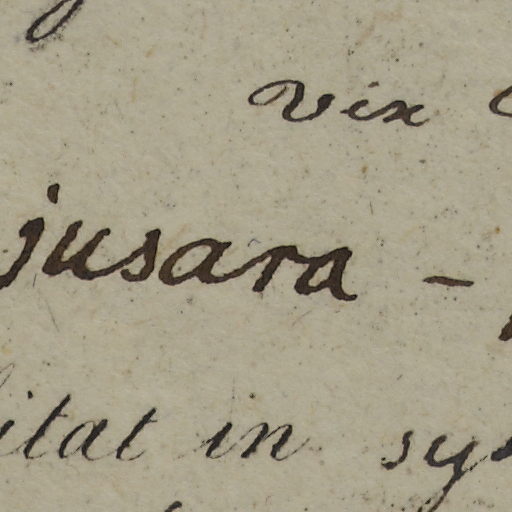 vix
jusara -
itat in sy